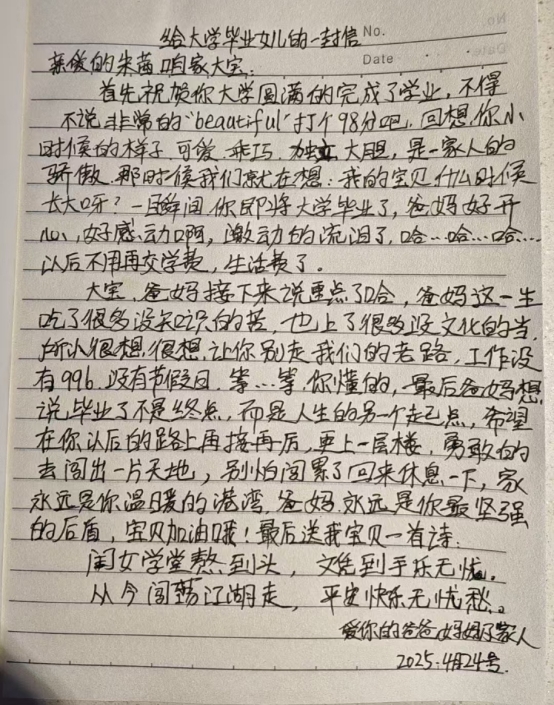 给大学毕业女儿的一封信 No.
Date
亲爱的朱茜咱家大宝:
首先祝贺你大学圆满的完成了学业，不得
不说非常的"beautiful"打个98分吧，回想你小
时候的样子，可爱，乖巧，独立，大胆，是一家人的
骄傲，那时候我们就在想：我的宝贝什么时候
长大呀？一瞬间，你即将大学毕业了，爸妈好开
心，好感动啊，激动的流泪了，哈…哈…哈…
以后不用再交学费，生活费了。
大宝，爸妈接下来说重点了哈，爸妈这一生
吃了很多没知识的苦，也上了很多没文化的当，
所以很想，很想，让你别走我们的老路，工作没
有996，没有节假日，等…等，你懂的，最后爸妈想
说，毕业了不是终点，而是人生的另一个起点，希望
在你以后的路上再接再后，更上一层楼，勇敢的
去闯出一片天地，别怕闯累了回来休息一下，家
永远是你温暖的港湾，爸妈永远是你最坚强
的后盾，宝贝加油哦！最后送我宝贝一首诗：
闺女学堂熬到头，文凭到手乐无忧。
从今闯荡江湖走，平安快乐无忧愁。
爱你的爸爸妈妈家人
2025.4月24号.